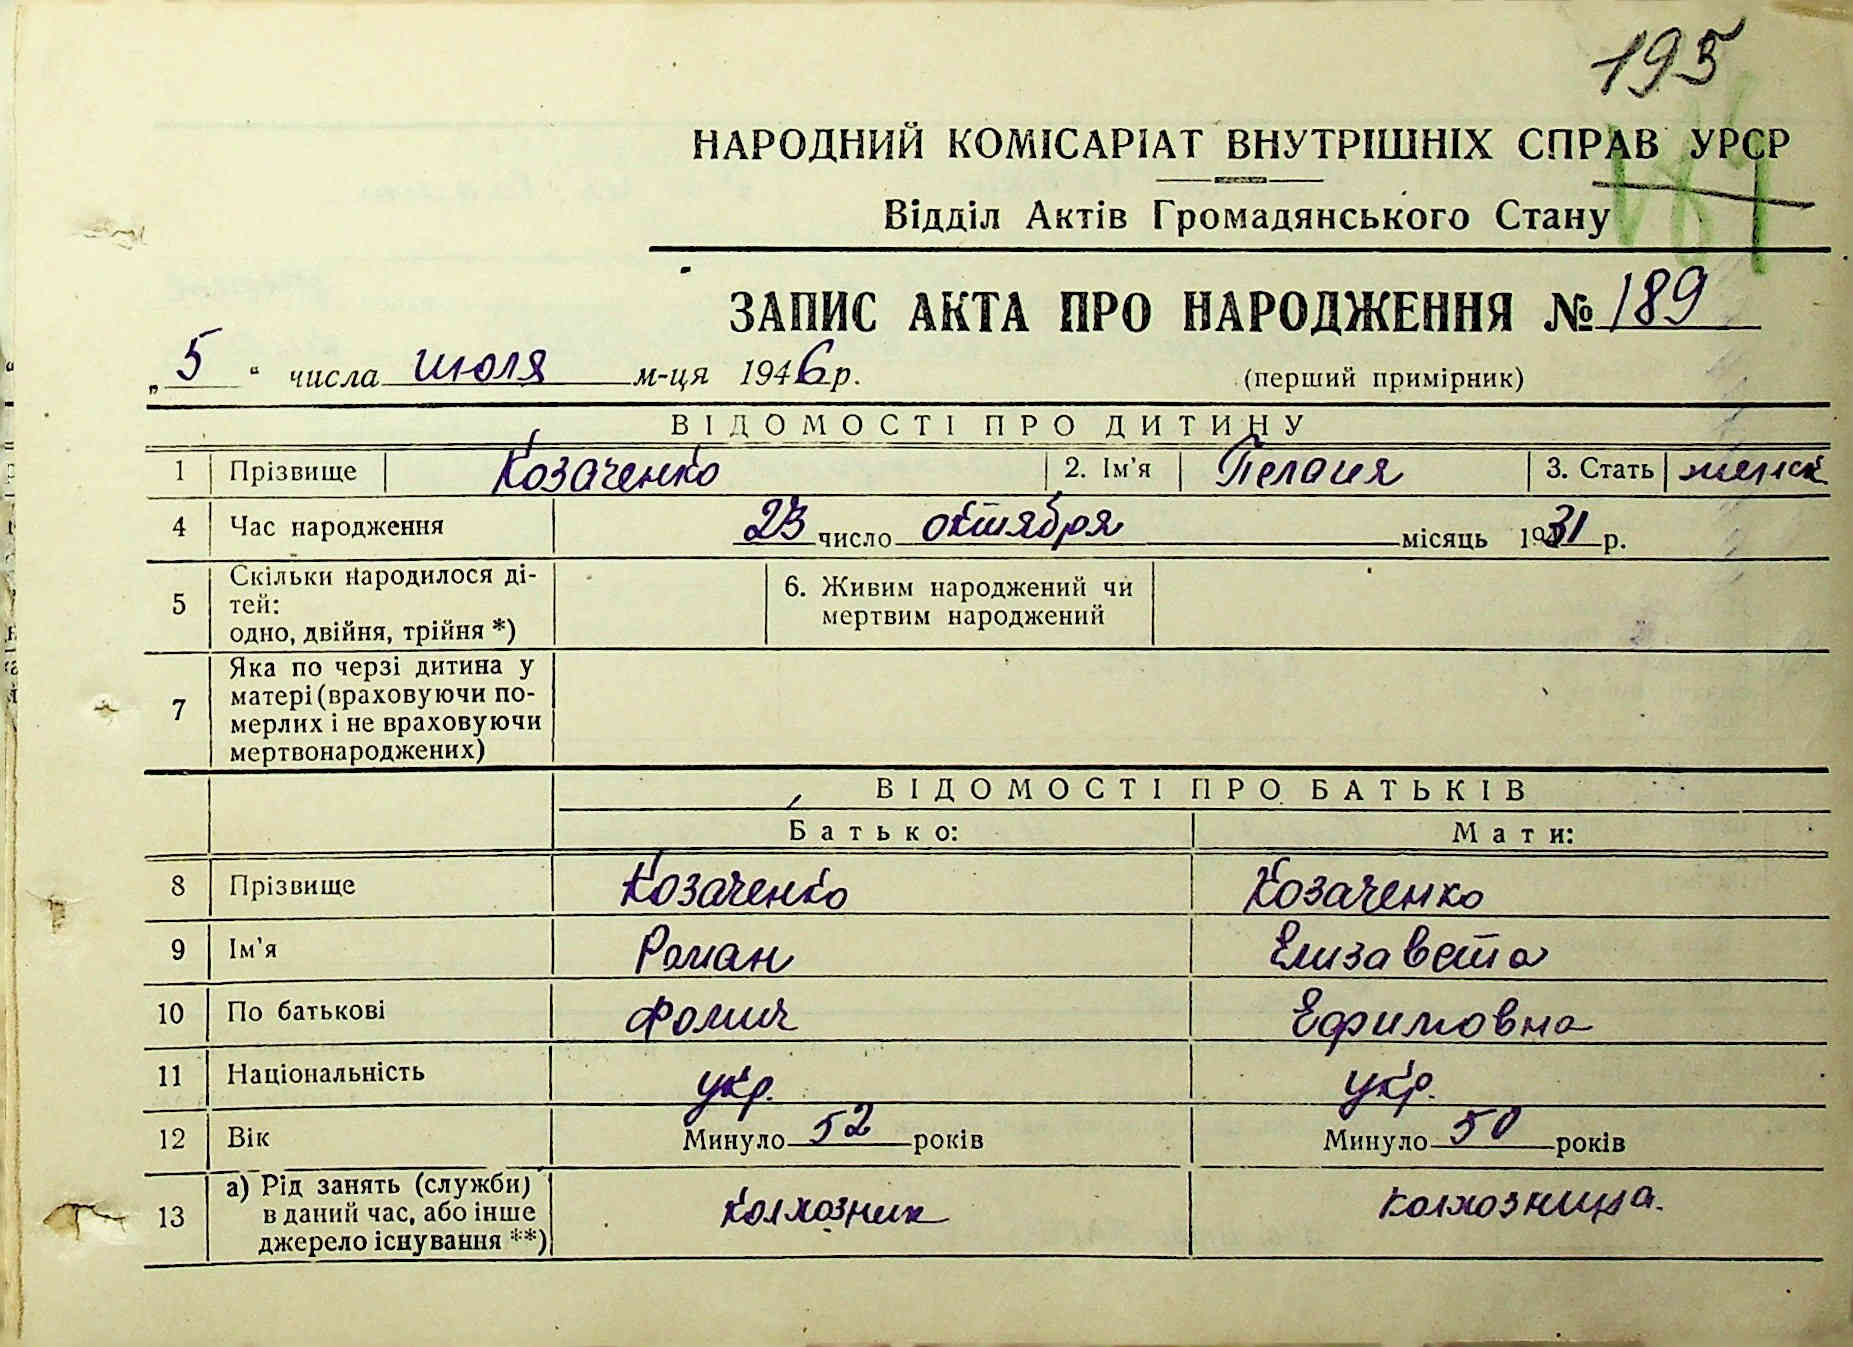 195
НАРОДНИЙ КОМІСАРІАТ ВНУТРІШНІХ СПРАВ УРСР
187
Відділ Актів Громадянського Стану
ЗАПИС АКТА ПРО НАРОДЖЕННЯ № 189
„5“ числа июля м-ця 1946 р. (перший примірник)
ВІДОМОСТІ ПРО ДИТИНУ
1 Прізвище Козаченко 2. Ім'я Пелагия 3. Стать женск
4 Час народження 23 число октября місяць 1931 р.
5 Скільки народилося ді-
тей:
одно, двійня, трійня *)
6. Живим народжений чи
мертвим народжений
7 Яка по черзі дитина у
матері (враховуючи по-
мерлих і не враховуючи
мертвонароджених)
ВІДОМОСТІ ПРО БАТЬКІВ
Батько: Мати:
8 Прізвище Козаченко Козаченко
9 Ім'я Роман Елизавета
10 По батькові Фомич Ефимовна
11 Національність укр. укр.
12 Вік Минуло 52 років Минуло 50 років
13 а) Рід занять (служби)
в даний час, або інше
джерело існування **)
колхозник колхозница.